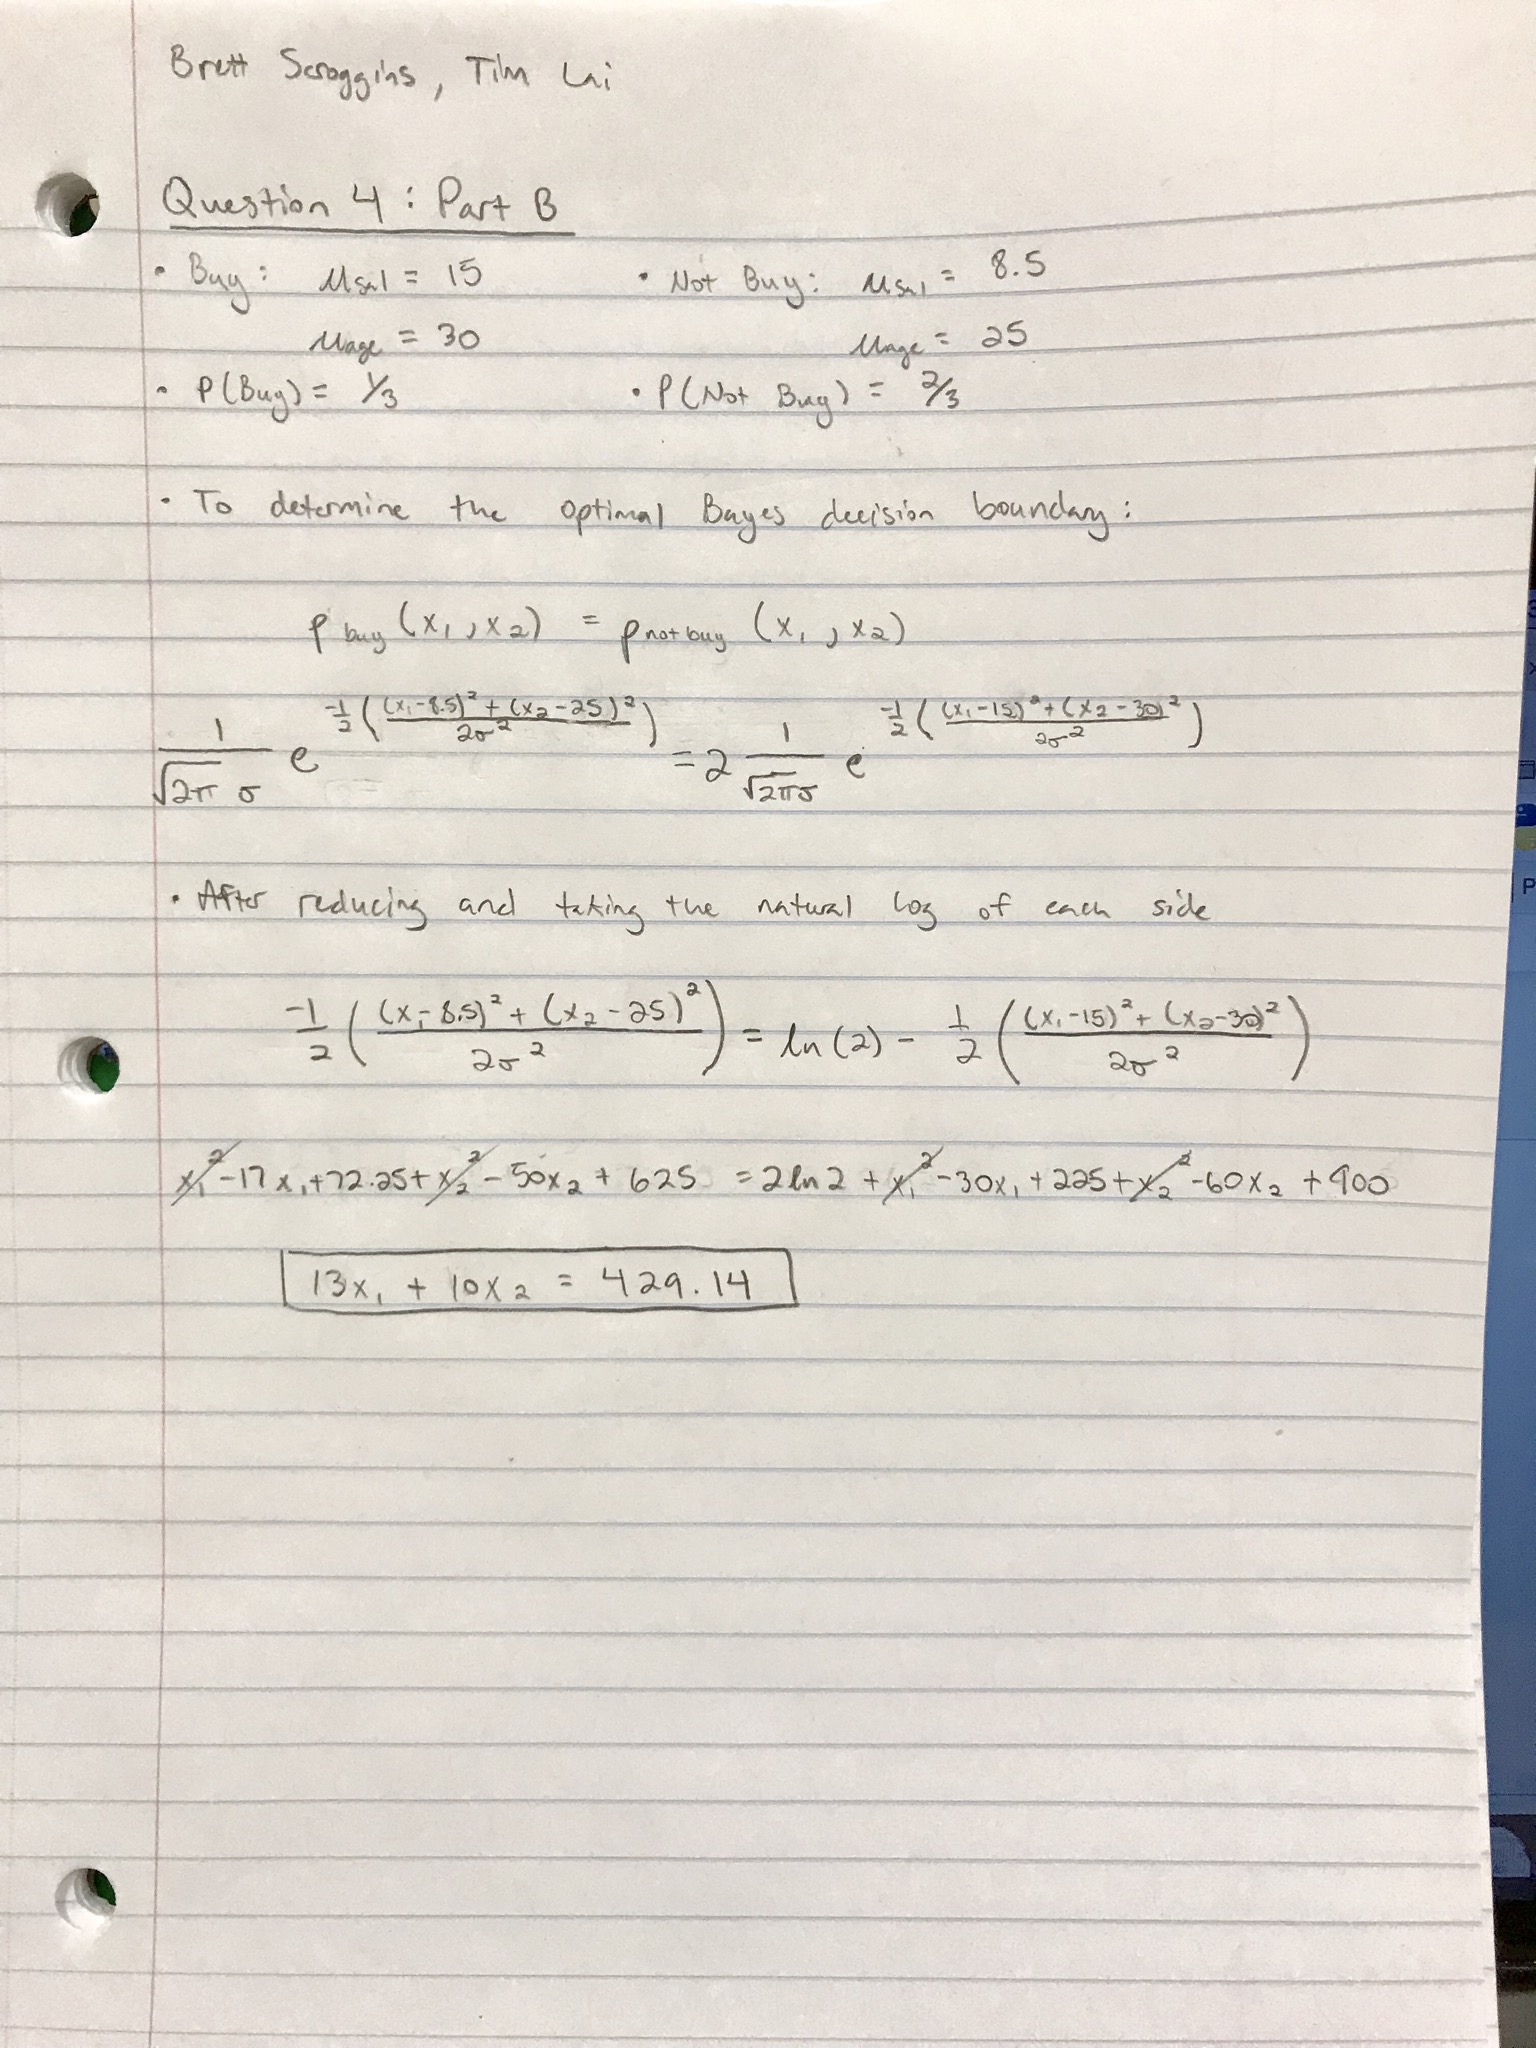 Brett Scroggins, Tim Lai
Question 4: Part B
• Buy: μsal = 15 • Not Buy: μsal = 8.5
μage = 30 μage = 25
• P(Buy) = 1/3 • P(Not Buy) = 2/3
• To determine the optimal Bayes decision boundary:
P buy (x₁, x₂) = P not buy (x₁, x₂)
1/(√2π σ) e^(-1/2 ((x₁-8.5)² + (x₂-25)²)/(2σ²)) = 2 1/(√2π σ) e^(-1/2 ((x₁-15)² + (x₂-30)²)/(2σ²))
• After reducing and taking the natural log of each side
-1/2 (((x₁-8.5)² + (x₂-25)²)/(2σ²)) = ln(2) - 1/2 (((x₁-15)² + (x₂-30)²)/(2σ²))
x₁² - 17x₁ + 72.25 + x₂² - 50x₂ + 625 = 2ln2 + x₁² - 30x₁ + 225 + x₂² - 60x₂ + 900
13x₁ + 10x₂ = 429.14